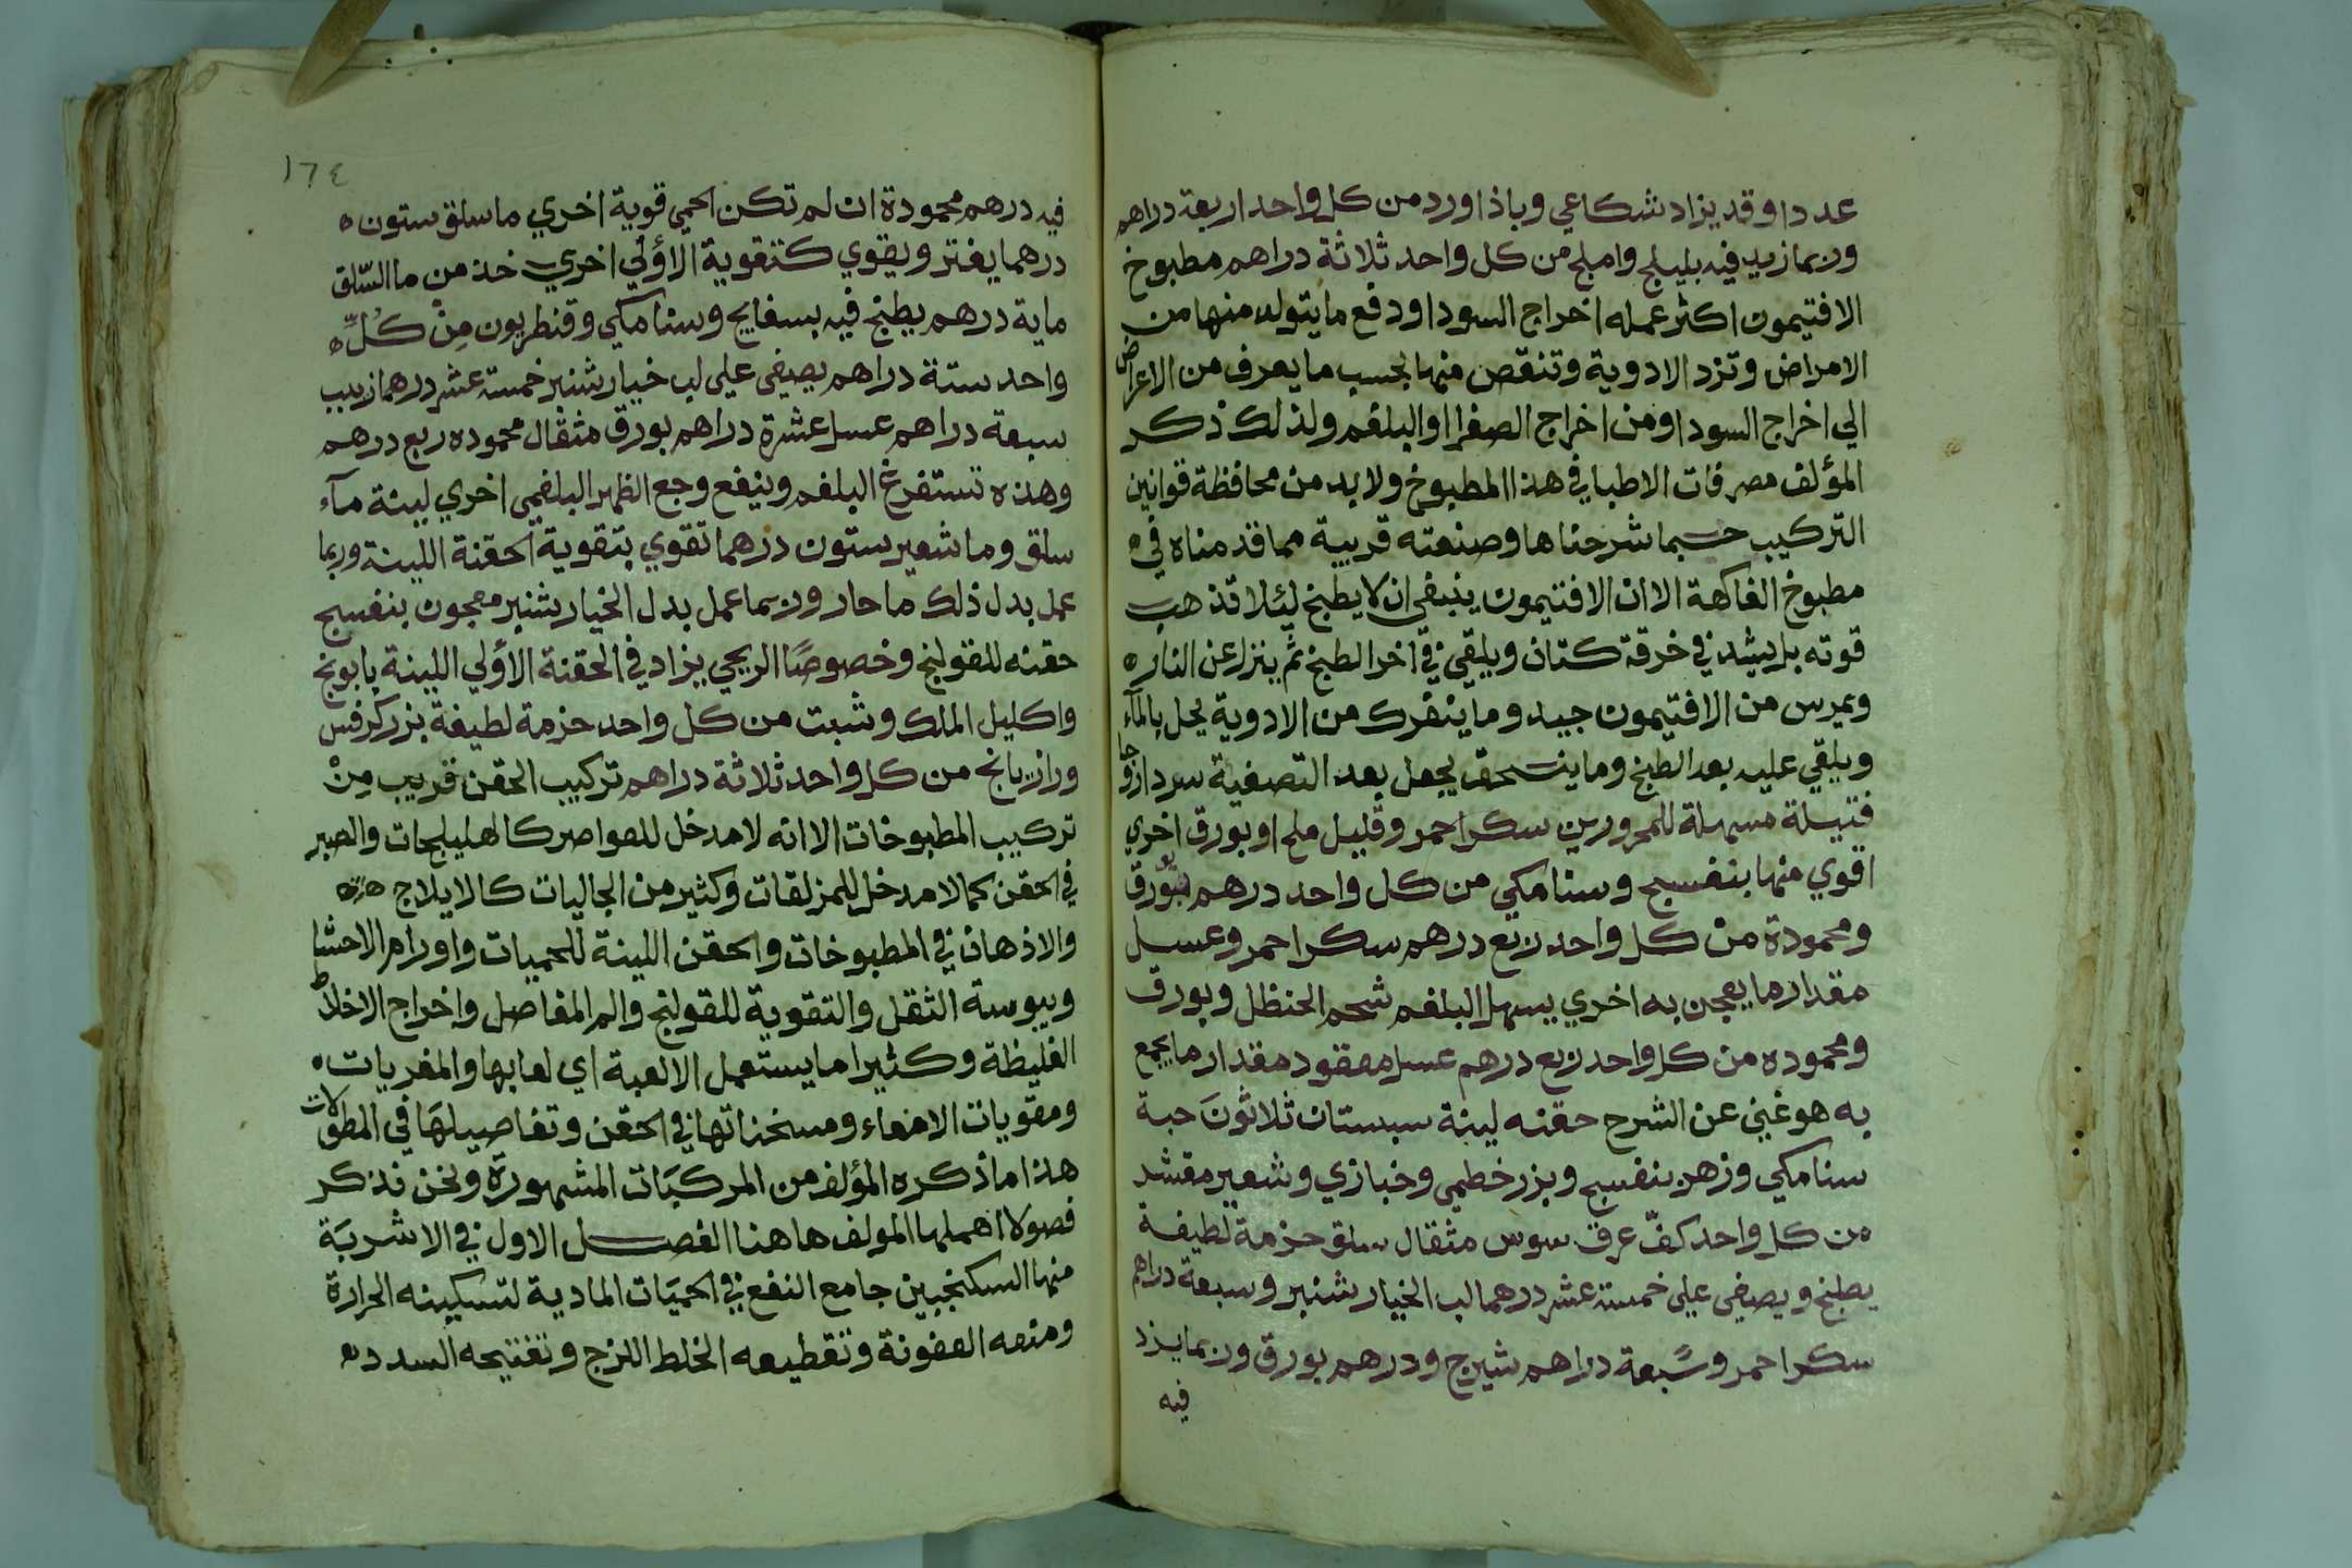 عددا وقد يزاد شكاعي وباذاورد من كل واحد اربعة دراهم
وربما زيد فيه بليلج واملج من كل واحد ثلاثة دراهم مطبوخ
الافتيمون اكثر عمله اخراج السودا ودفع ما يتولد منها من
الامراض وتزد الادوية وتنقص منها بحسب ما يعرف من الاعراض
الي اخراج السودا ومن اخراج الصفرا او البلغم ولذلك ذكر
المؤلف مصرفات الاطبا في هذا المطبوخ ولا بد من محافظة قوانين
التركيب حسبما شرحناها وصنعته قريبة مما قدمناه في
مطبوخ الفاكهة الا ان الافتيمون ينبغي ان لا يطبخ ليئلا تذهب
قوته بل يشد في خرقة كتان ويلقي في اخر الطبخ ثم ينزل عن النار ه
ويمرس من الافتيمون جيد وما ينفرك من الادوية يحل بالمآء
ويلقي عليه بعد الطبخ وما ينسحق يجعل بعد التصفية
فتيلة مسهلة للمحرورين سكر احمر وقليل ملح او بورق اخري
اقوي منها بنفسج وسنامكي من كل واحد درهم بورق
ومحمودة من كل واحد ربع درهم سكر احمر وعسل
مقدار ما يعجن به اخري يسهل البلغم شحم الحنظل وبورق
ومحموده من كل واحد ربع درهم عسل معقود مقدار ما يجمع
به هو غني عن الشرح حقنه لينة سبستان ثلاثونَ حبة
سنامكي وزهر بنفسج وبزر خطمي وخبازي وشعير مقشر
من كل واحد كفّ عرق سوس مثقال سلق حزمة لطيفة
يطبخ ويصفي علي خمسة عشر درهما لب الخيار شنبر وسبعة دراهم
سكر احمر وسبعة دراهم شيرج ودرهم بورق وربما يزد
فيه
١٦٤
فيه درهم محمودة ان لم تكن الحمي قوية اخري ما سلق ستون ه
درهما يفتر ويقوي كتقوية الاؤلي اخري خذ من ما السّلق
ماية درهم يطبخ فيه بسفايج وسنامكي وقنطريون مِنْ كُلِّ ه
واحد ستة دراهم يصفي علي لب خيار شنبر خمسة عشر درهما زبيب
سبعة دراهم عسل عشرة دراهم بورق مثقال محموده ربع درهم
وهذه تستفرغ البلغم وينفع وجع الظهر البلغمي اخري لينة مآء
سلق وما شعير ستون درهما تقوي بتقوية الحقنة اللينة وربما
عمل بدل ذلك ما حار وربما عمل بدل الخيار شنبر معجون بنفسج
حقنه للقولنج وخصوصًا الريحي يزاد في الحقنة الاؤلي اللينة بابونج
واكليل الملك وشبت من كل واحد حزمة لطيفة بزر كرفس
ورازيانج من كل واحد ثلاثة دراهم تركيب الحقن قريب مِنْ
تركيب المطبوخات الا انه لا مدخل للعواصر كالهليلجات والصبر
في الحقن كما لا مدخل للمزلقات وكثير من الجاليات كالايلاج
والادهان في المطبوخات والحقن اللينة للحميات واورام الاحشا
ويبوسة الثقل والتقوية للقولنج والم المفاصل واخراج الاخلاط
الغليظة وكثيرا ما يستعمل الالعبة اي لعابها والمغريات ه
ومقويات الامعاء ومسخناتها في الحقن وتفاصيلهَا في المطولات
هذا ما ذكره المؤلف من المركبَات المشهورة ونحن نذكر
فصولا اهملها المولف هاهنا الفصل الاول في الاشربَة
منها السكنجبين جامع النفع في الحميَات المادية لتسكينه الحرارة
ومنعه العفونة وتقطيعه الخلط اللزج وتفتيحه السدد